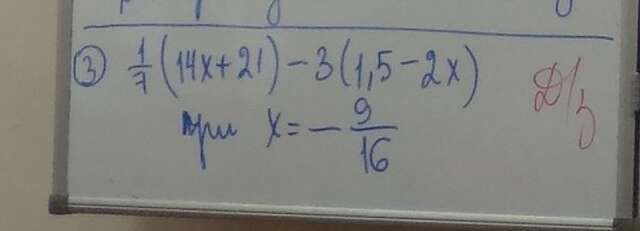 ③ 1/7 (14x+21) − 3(1,5 − 2x) Д/з
при x = − 9/16